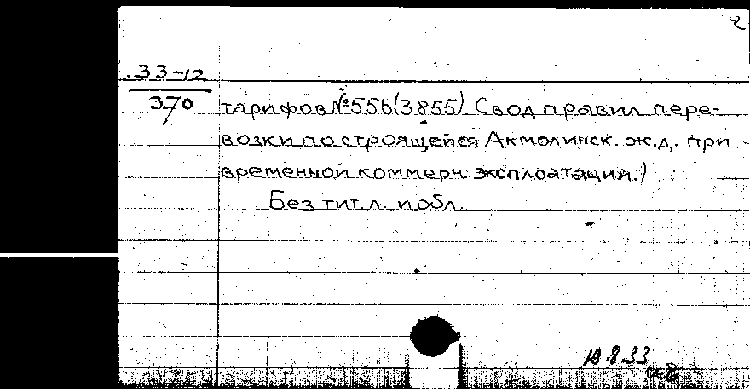 2
33-12
370
тарифов №556(3855). Свод правил пере-
возки по строящейся Акмолинск. ж.д. при
временной коммерч. эксплоатации.)
Без тит. л. и обл.